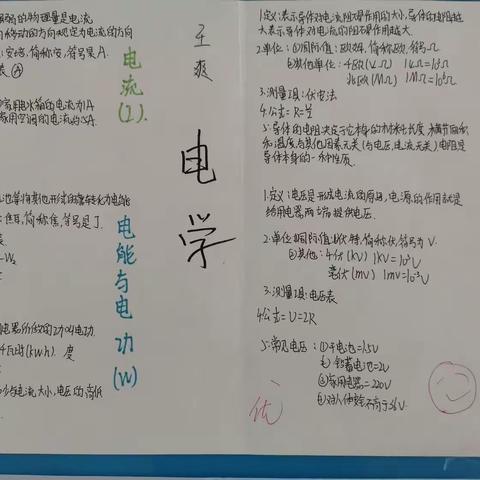 的物理量是电流
移动的方向规定为电流的方向
:安培,简称安,符号是A.
表 Ⓐ
家用电水箱的电流为1A
家用空调的电流约5A.
电流(I).
王爽
电学
也等将其他形式的能转化为电能
:焦耳,简称焦,符号是J.
表
-W₂
电器所做的功叫电功.
千瓦时(kwh). 度
电流大小,电压的高低
电能与电功(W)
1.定义:表示导体对电流阻碍作用的大小,导体的电阻越
大表示导体对电流的阻碍作用越大.
2.单位:①国际值:欧姆,简称欧,符号Ω
②其他单位:千欧(KΩ) 1KΩ=10³Ω
兆欧(MΩ) 1MΩ=10⁶Ω
3.测量工具:伏安法
4.公式=R=
5.导体的电阻决定于它本身的材料、长度、横截面积
和温度与其他因素无关(与电压,电流无关)电阻是
导体本身的一种性质.
1.定义:电压是形成电流的原因,电源的作用就是
给用电器两端提供电压.
2.单位:①国际值:伏特,简称伏,符号为V.
②其他:千伏(kV) 1kV=10³V
毫伏(mV) 1mV=10⁻³V
3.测量工具:电压表
4公式=U=IR
5:常见电压:①干电池=1.5V
②铅蓄电池=2V
③家用电器=220V
④对人体安全不高于36V.
优